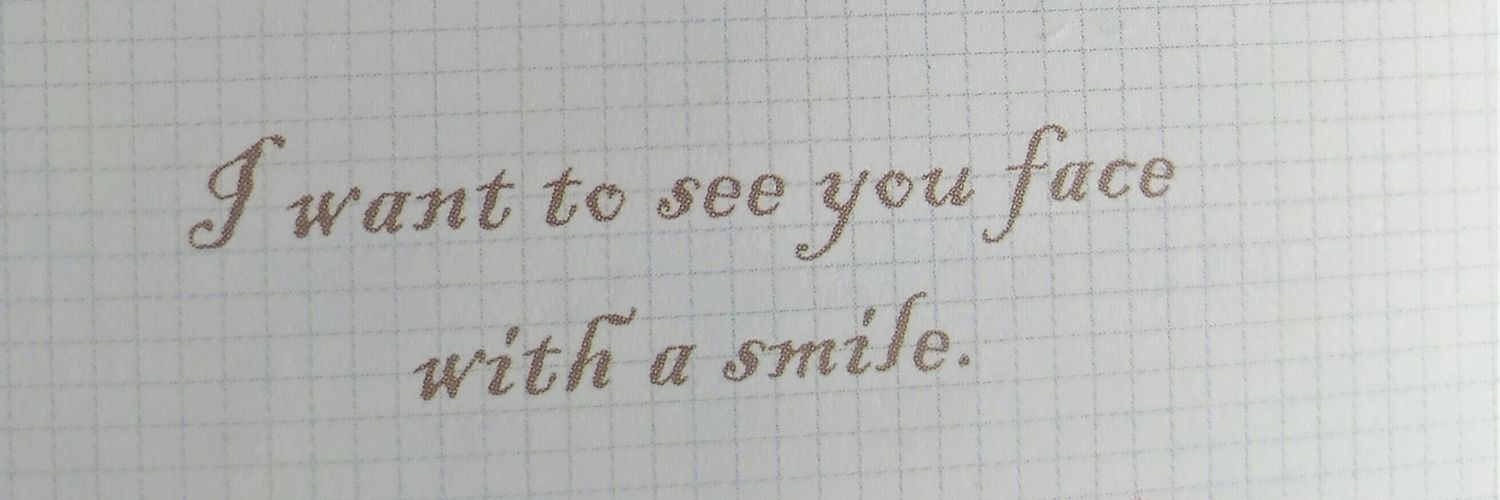 I want to see you face
with a smile.